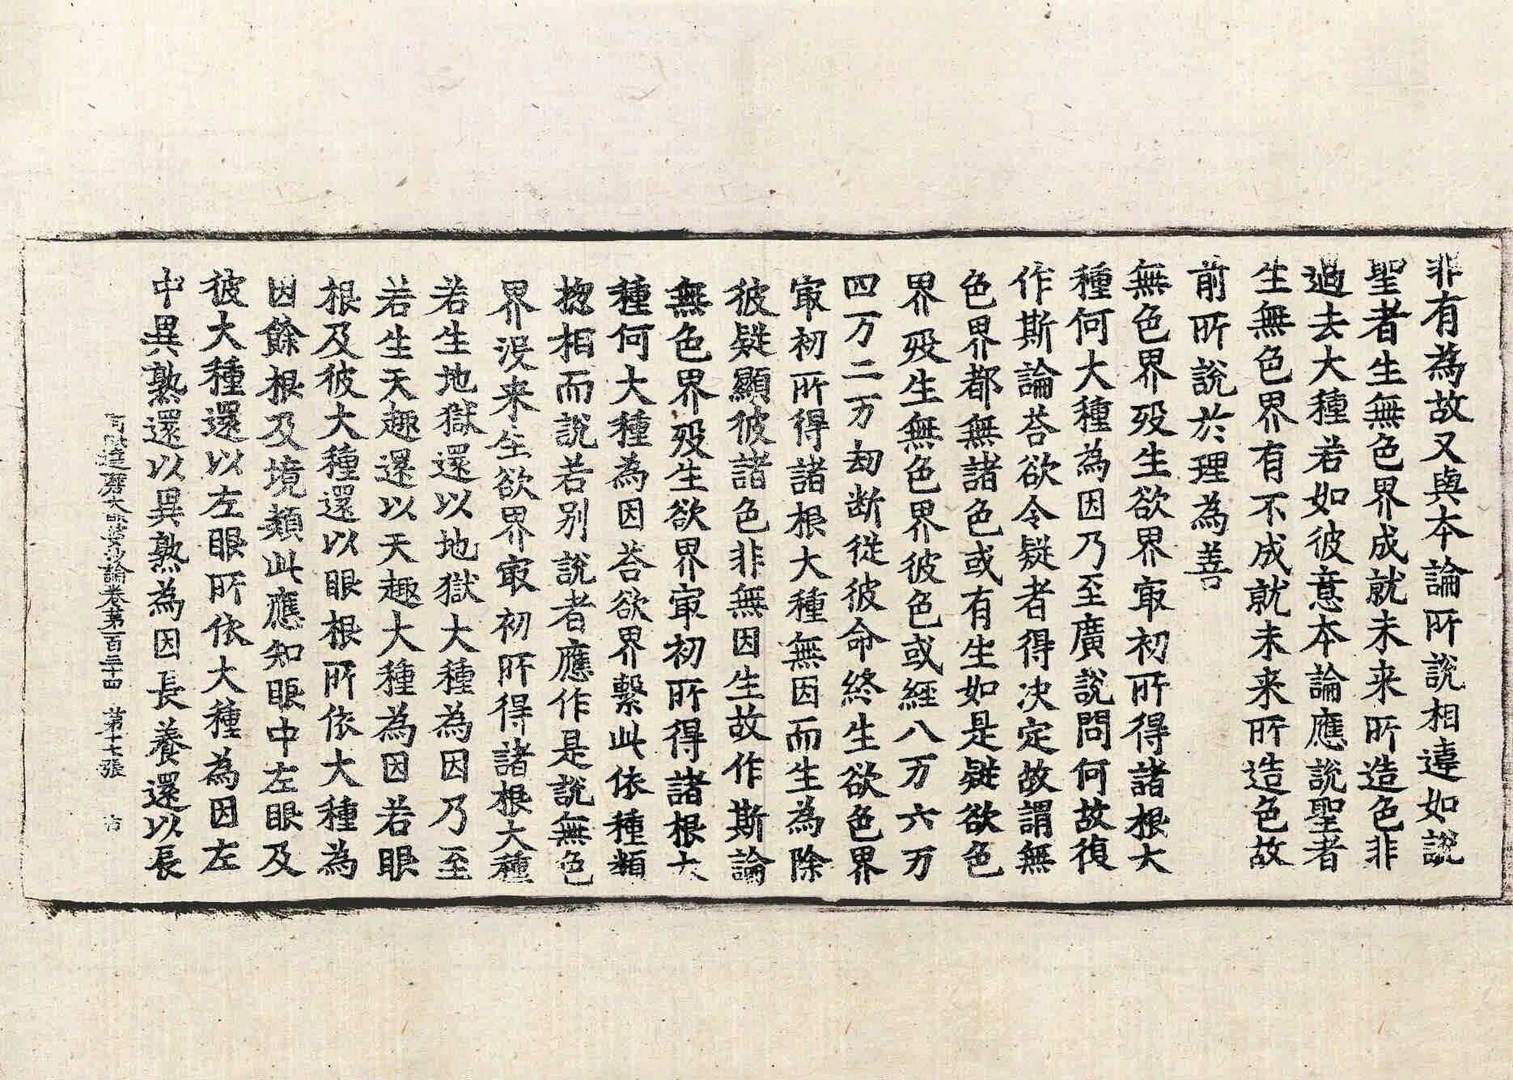 非有為故又與本論所說相違如說
聖者生無色界成就未来所造色非
過去大種若如彼意本論應說聖者
生無色界有不成就未来所造色故
前所說於理為善
無色界歿生欲界冣初所得諸根大
種何大種為因乃至廣說問何故復
作斯論荅欲令疑者得决定故謂無
色界都無諸色或有生如是疑欲色
界歿生無色界彼色或經八万六万
四万二万劫断從彼命終生欲色界
冣初所得諸根大種無因而生為除
彼疑顯彼諸色非無因生故作斯論
無色界歿生欲界冣初所得諸根大
種何大種為因荅欲界繫此依種類
揔相而說若別說者應作是說無色
界沒来生欲界冣初所得諸根大種
若生地獄還以地獄大種為因乃至
若生天趣還以天趣大種為因若眼
根及彼大種還以眼根所依大種為
因餘根及境類此應知眼中左眼及
彼大種還以左眼所依大種為因左
中異熟還以異熟為因長養還以長
阿毗達磨大毗婆沙論卷第一百三十四 第十七張